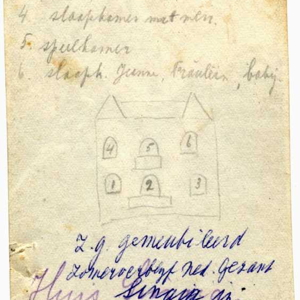 4 slaapkamer met
5. speelkamer
6. slaapk. Jeanne, Fräulein, baby
4 5 6
1 2 3
Z.g. gemeubileerd
Zomerverblijf Ned. Gezant
Huis Sinaia